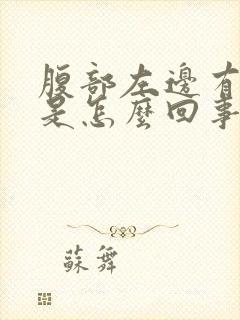 腹部左邊有
是怎麼回事
蘇舞